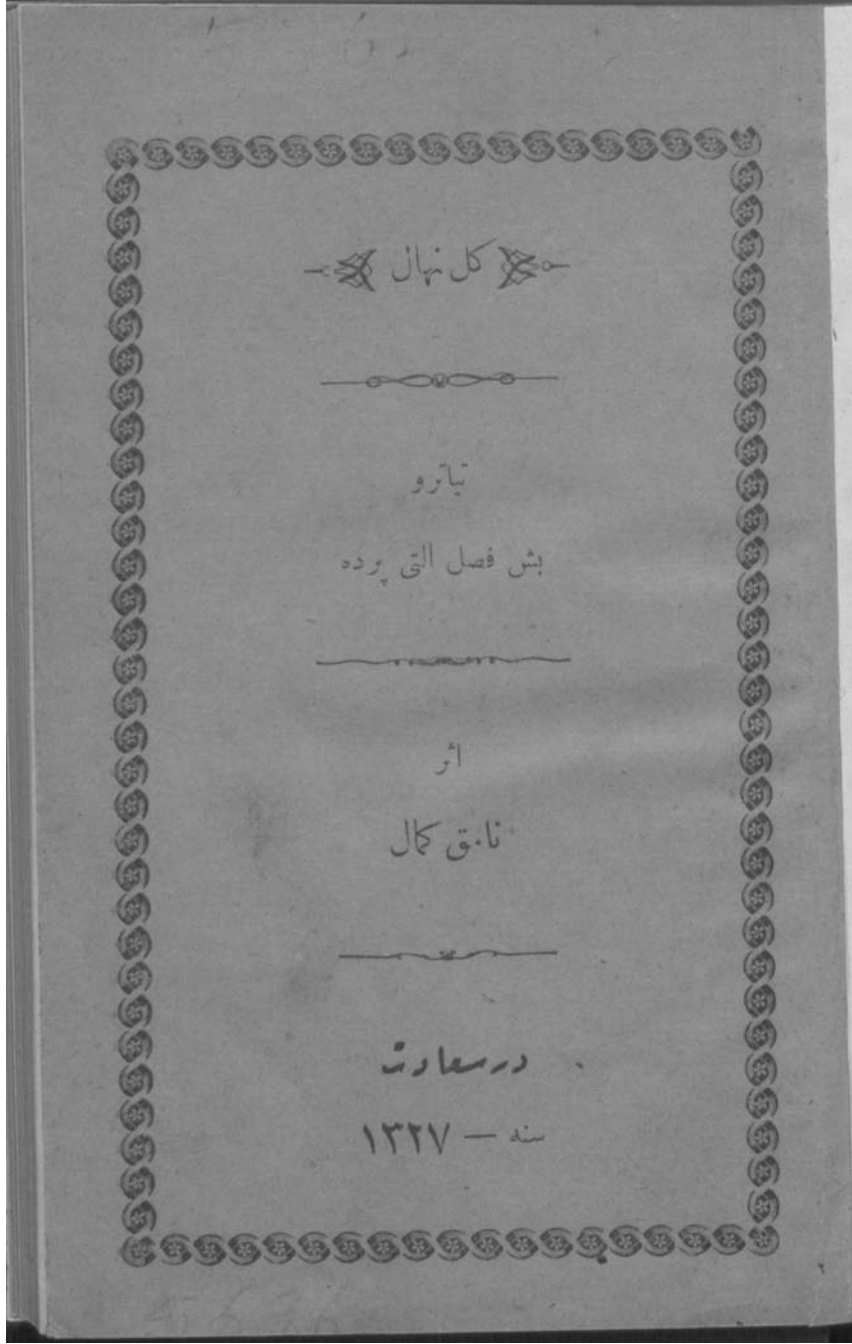 كل نهال
تياترو
بش فصل التى پرده
اثر
نامق كمال
درسعادت
سنه — ١٣٢٧